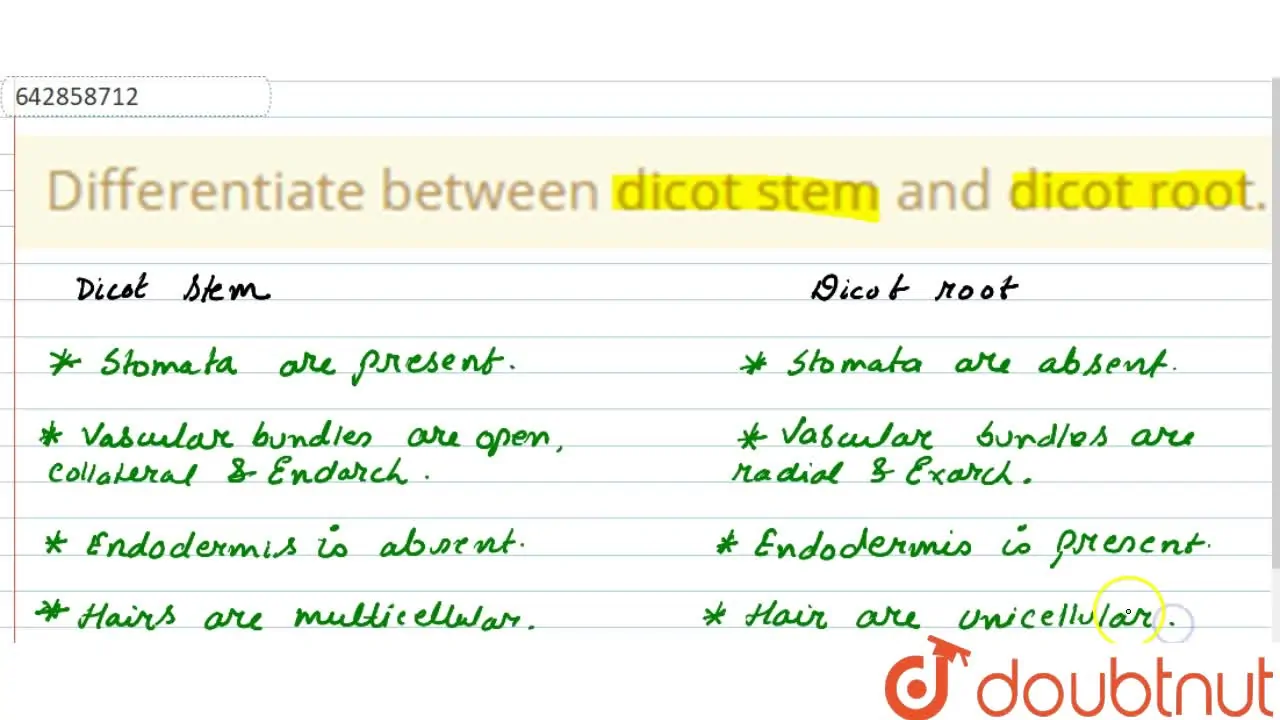 642858712
Differentiate between dicot stem and dicot root.
Dicot Stem Dicot root
* Stomata are present. * Stomata are absent.
* Vascular bundles are open, * Vascular bundles are
collateral & Endarch. radial & Exarch.
* Endodermis is absent. * Endodermis is present.
* Hairs are multicellular. * Hair are unicellular.
doubtnut